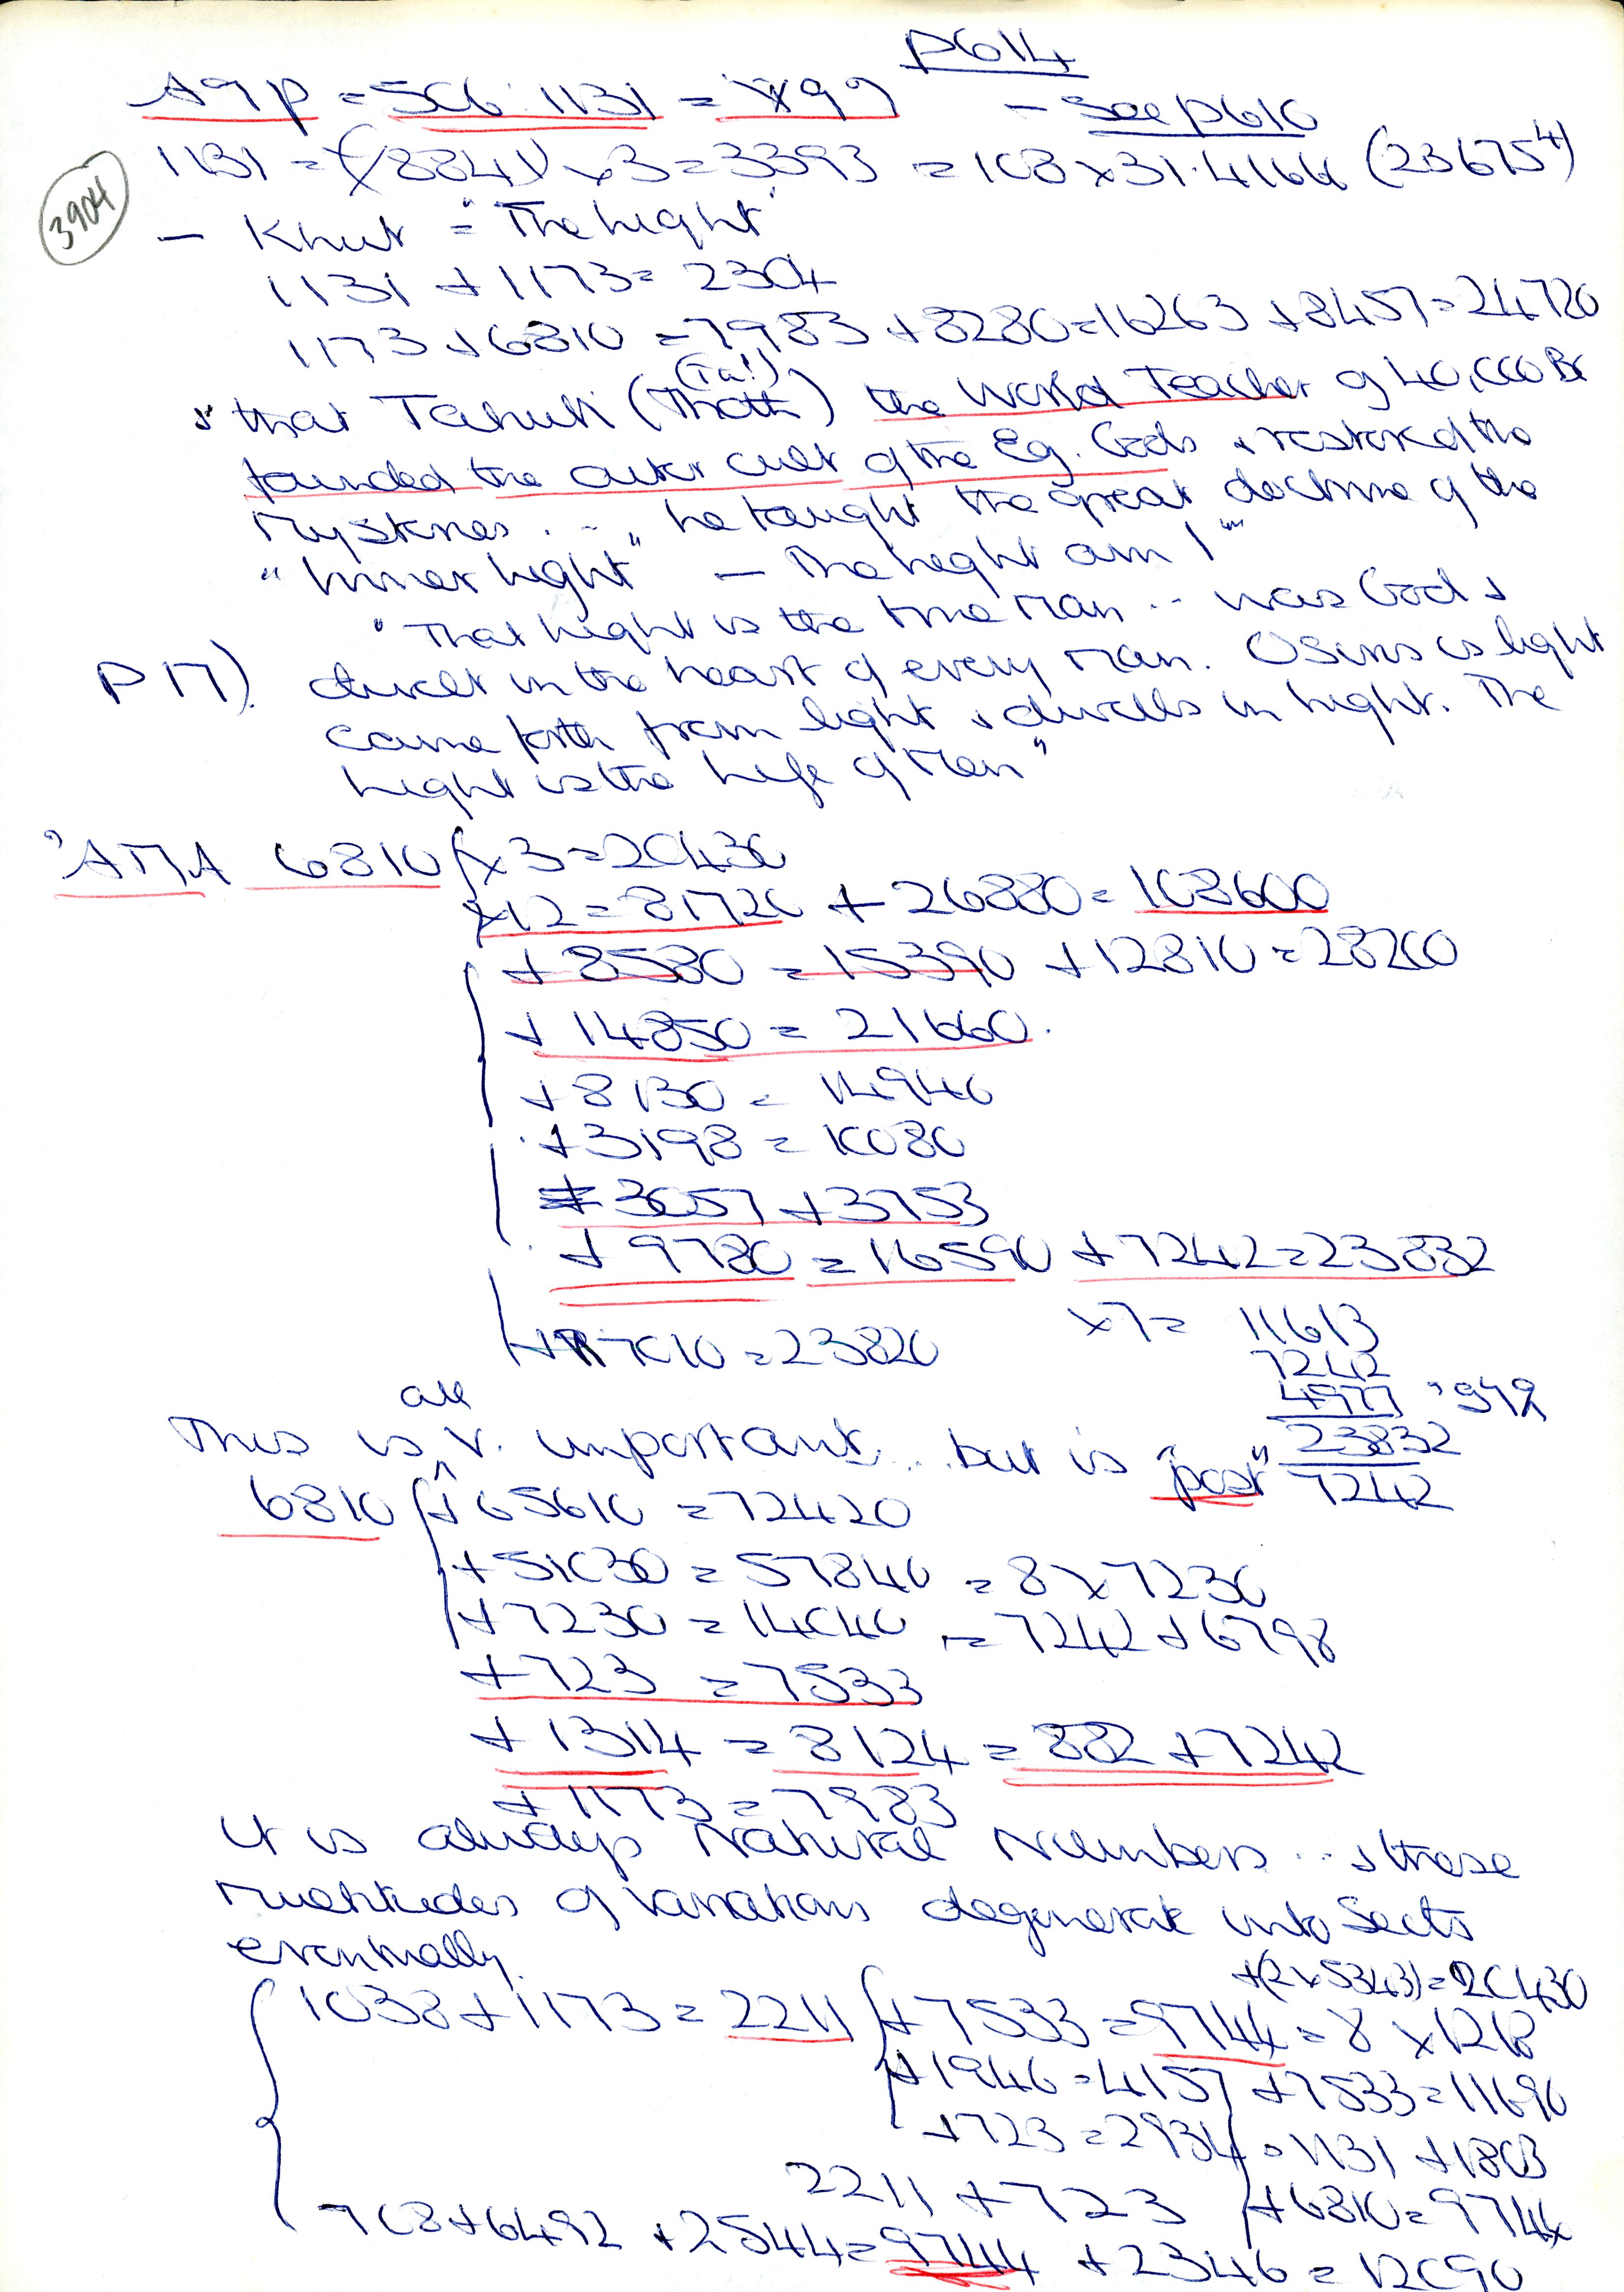 P614
A9p = 506 1131 = 1/99 - See p610
1131 = (/8841) x3 = 3393 = 108 x 31.4166 (23675⁴)
3904
- Khut = "The Light"
1131 + 1173 = 2304
1173 + 6810 = 7983 + 8280 = 16263 + 8457 = 24720
(Ta!)
that Tahuti (Thoth) the World Teacher of 40,000 BC
founded the outer cult of the Eg. Gods & restored the
Mysteries ... "he taught the great doctrine of the
"Inner Light" - The Light am I"
"That Light is the true Man .. was God &
P17). dwelt in the heart of every Man. Osiris is light
came forth from light & dwells in Light. The
Light is the Life of Men"
AMA 6810 x3 = 20430
x12 = 81720 + 26880 = 108600
+ 8580 = 15390 + 12810 = 28200
+ 14850 = 21660.
+ 8130 = 14940
+ 3198 = 10080
= 3057 + 3753
+ 9780 = 16590 + 7242 = 23832
x7 = 11613
+ 17010 = 23820
7242
4977 '949
all 23832
This is V. important... but is "post" 7242
6810 + 65610 = 72420
+ 51030 = 57840 = 8 x 7230
+ 7230 = 14040 = 7242 + 6798
+ 723 = 7533
+ 1314 = 8124 = 882 + 7242
+ 1173 = 7983
It is always Natural Numbers ... & these
multitudes of variations degenerate into Sects
eventually.
+(2 x 5343) = 20430
1038 + 1173 = 2211 + 7533 = 9744 = 8 x 1218
+ 1946 = 4157 + 7533 = 11690
+ 723 = 2934 = 1131 + 1803
2211 + 723 + 6810 = 9744
708 + 6492 + 2544 = 9744 + 2346 = 12090